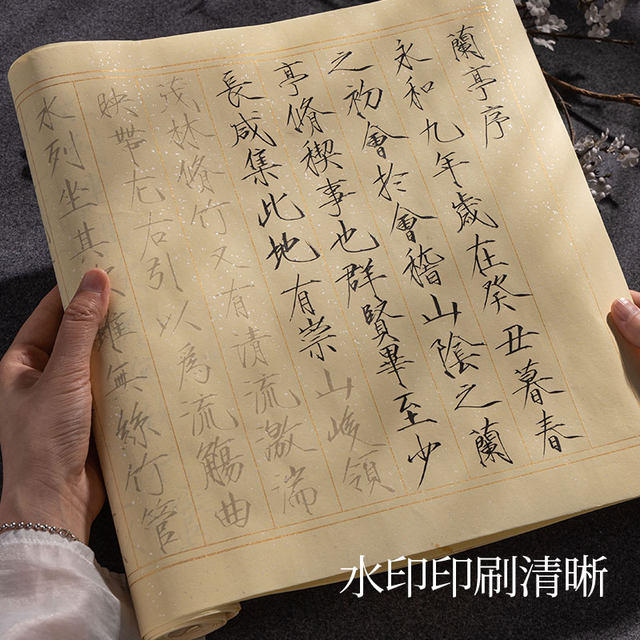 蘭亭序
永和九年歲在癸丑暮春
之初會於會稽山陰之蘭
亭脩稧事也群賢畢至少
長咸集此地有崇山峻領
茂林脩竹又有清流激湍
映帶左右引以為流觴曲
水列坐其次雖無絲竹管
水印印刷清晰